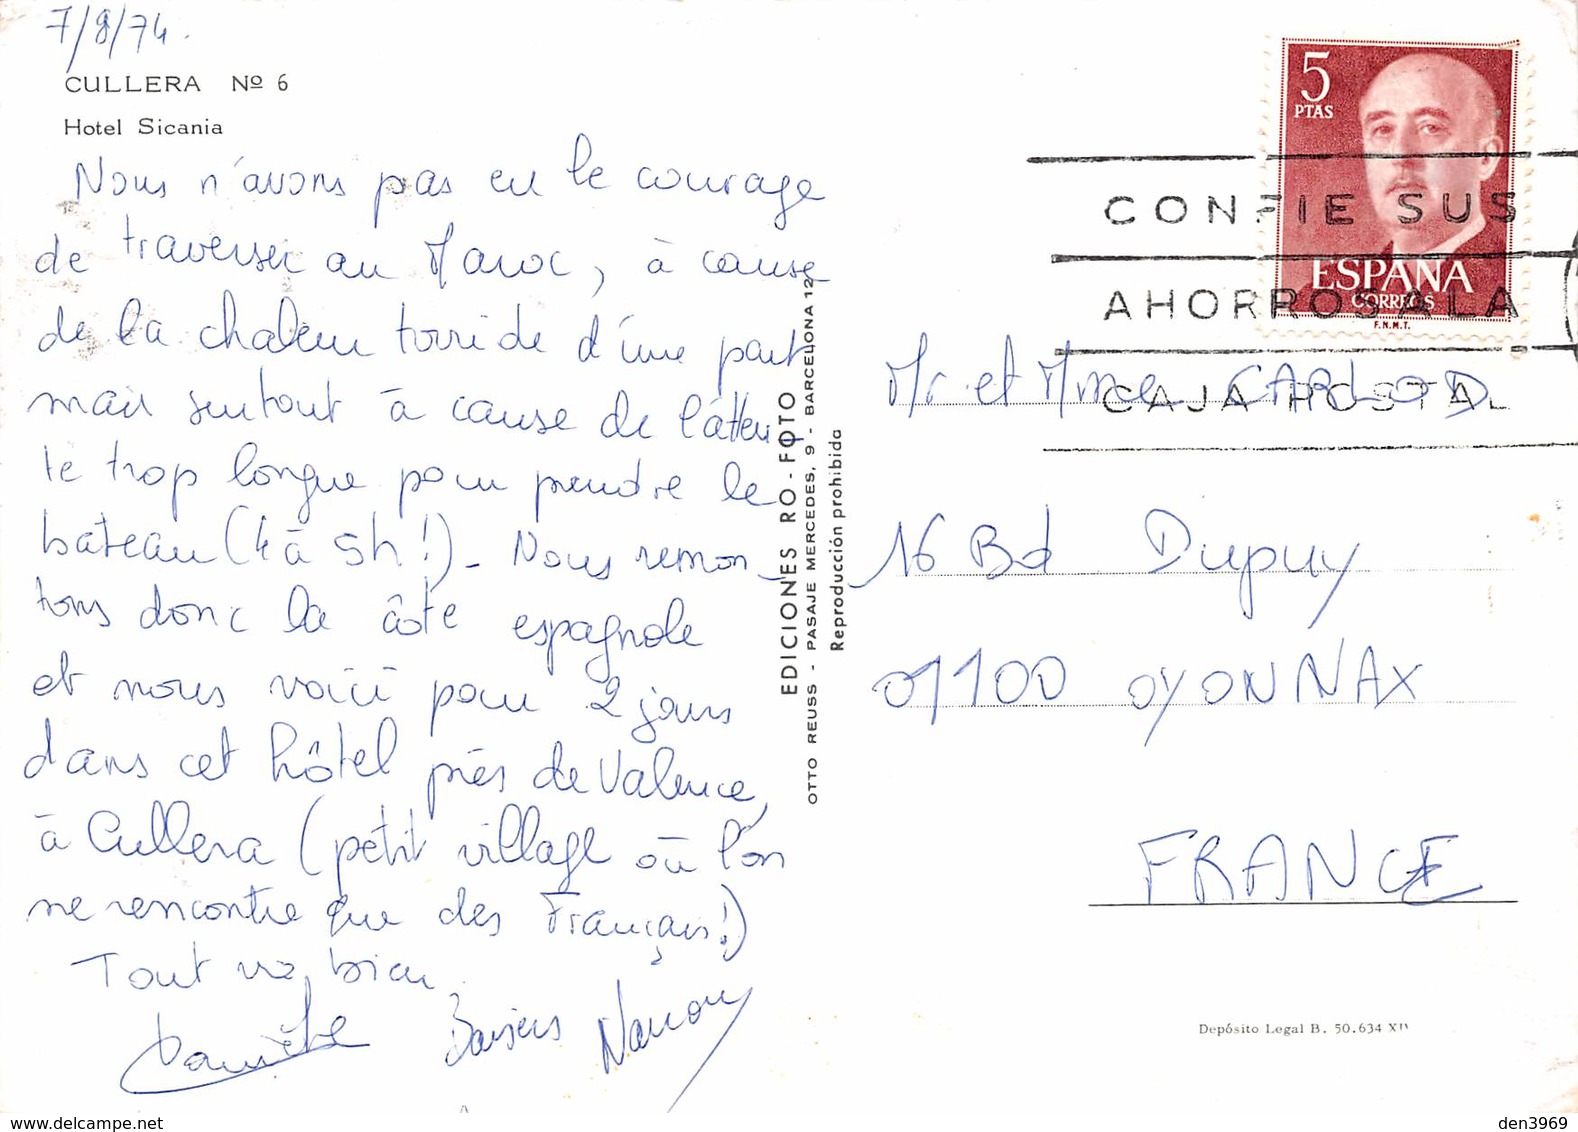 7/8/74.
CULLERA Nº 6
Hotel Sicania
Nous n'avons pas eu le courage
de traverser au Maroc, à cause
de la chaleur torride d'une part
mais surtout à cause de l'atten
te trop longue pour prendre le
bateau (4 à 5h!) - Nous remon_
tons donc la côte espagnole
et nous voici pour 2 jours
dans cet hôtel près de Valence,
à Cullera (petit village où l'on
ne rencontre que des Français!)
Tout va bien.
Danièle Baisers
EDICIONES RO - FOTO
OTTO REUSS - PASAJE MERCEDES, 9 - BARCELONA 12
Reproducción prohibida
5
PTAS
ESPAÑA
CORREOS
F.N.M.T.
CONFIE SUS
AHORROS A LA
CAJA POSTAL
Mr et Mme CARLOD
16 Bd Dupuy
01100 OYONNAX
FRANCE
Depósito Legal B. 50.634
www.delcampe.net
den3969